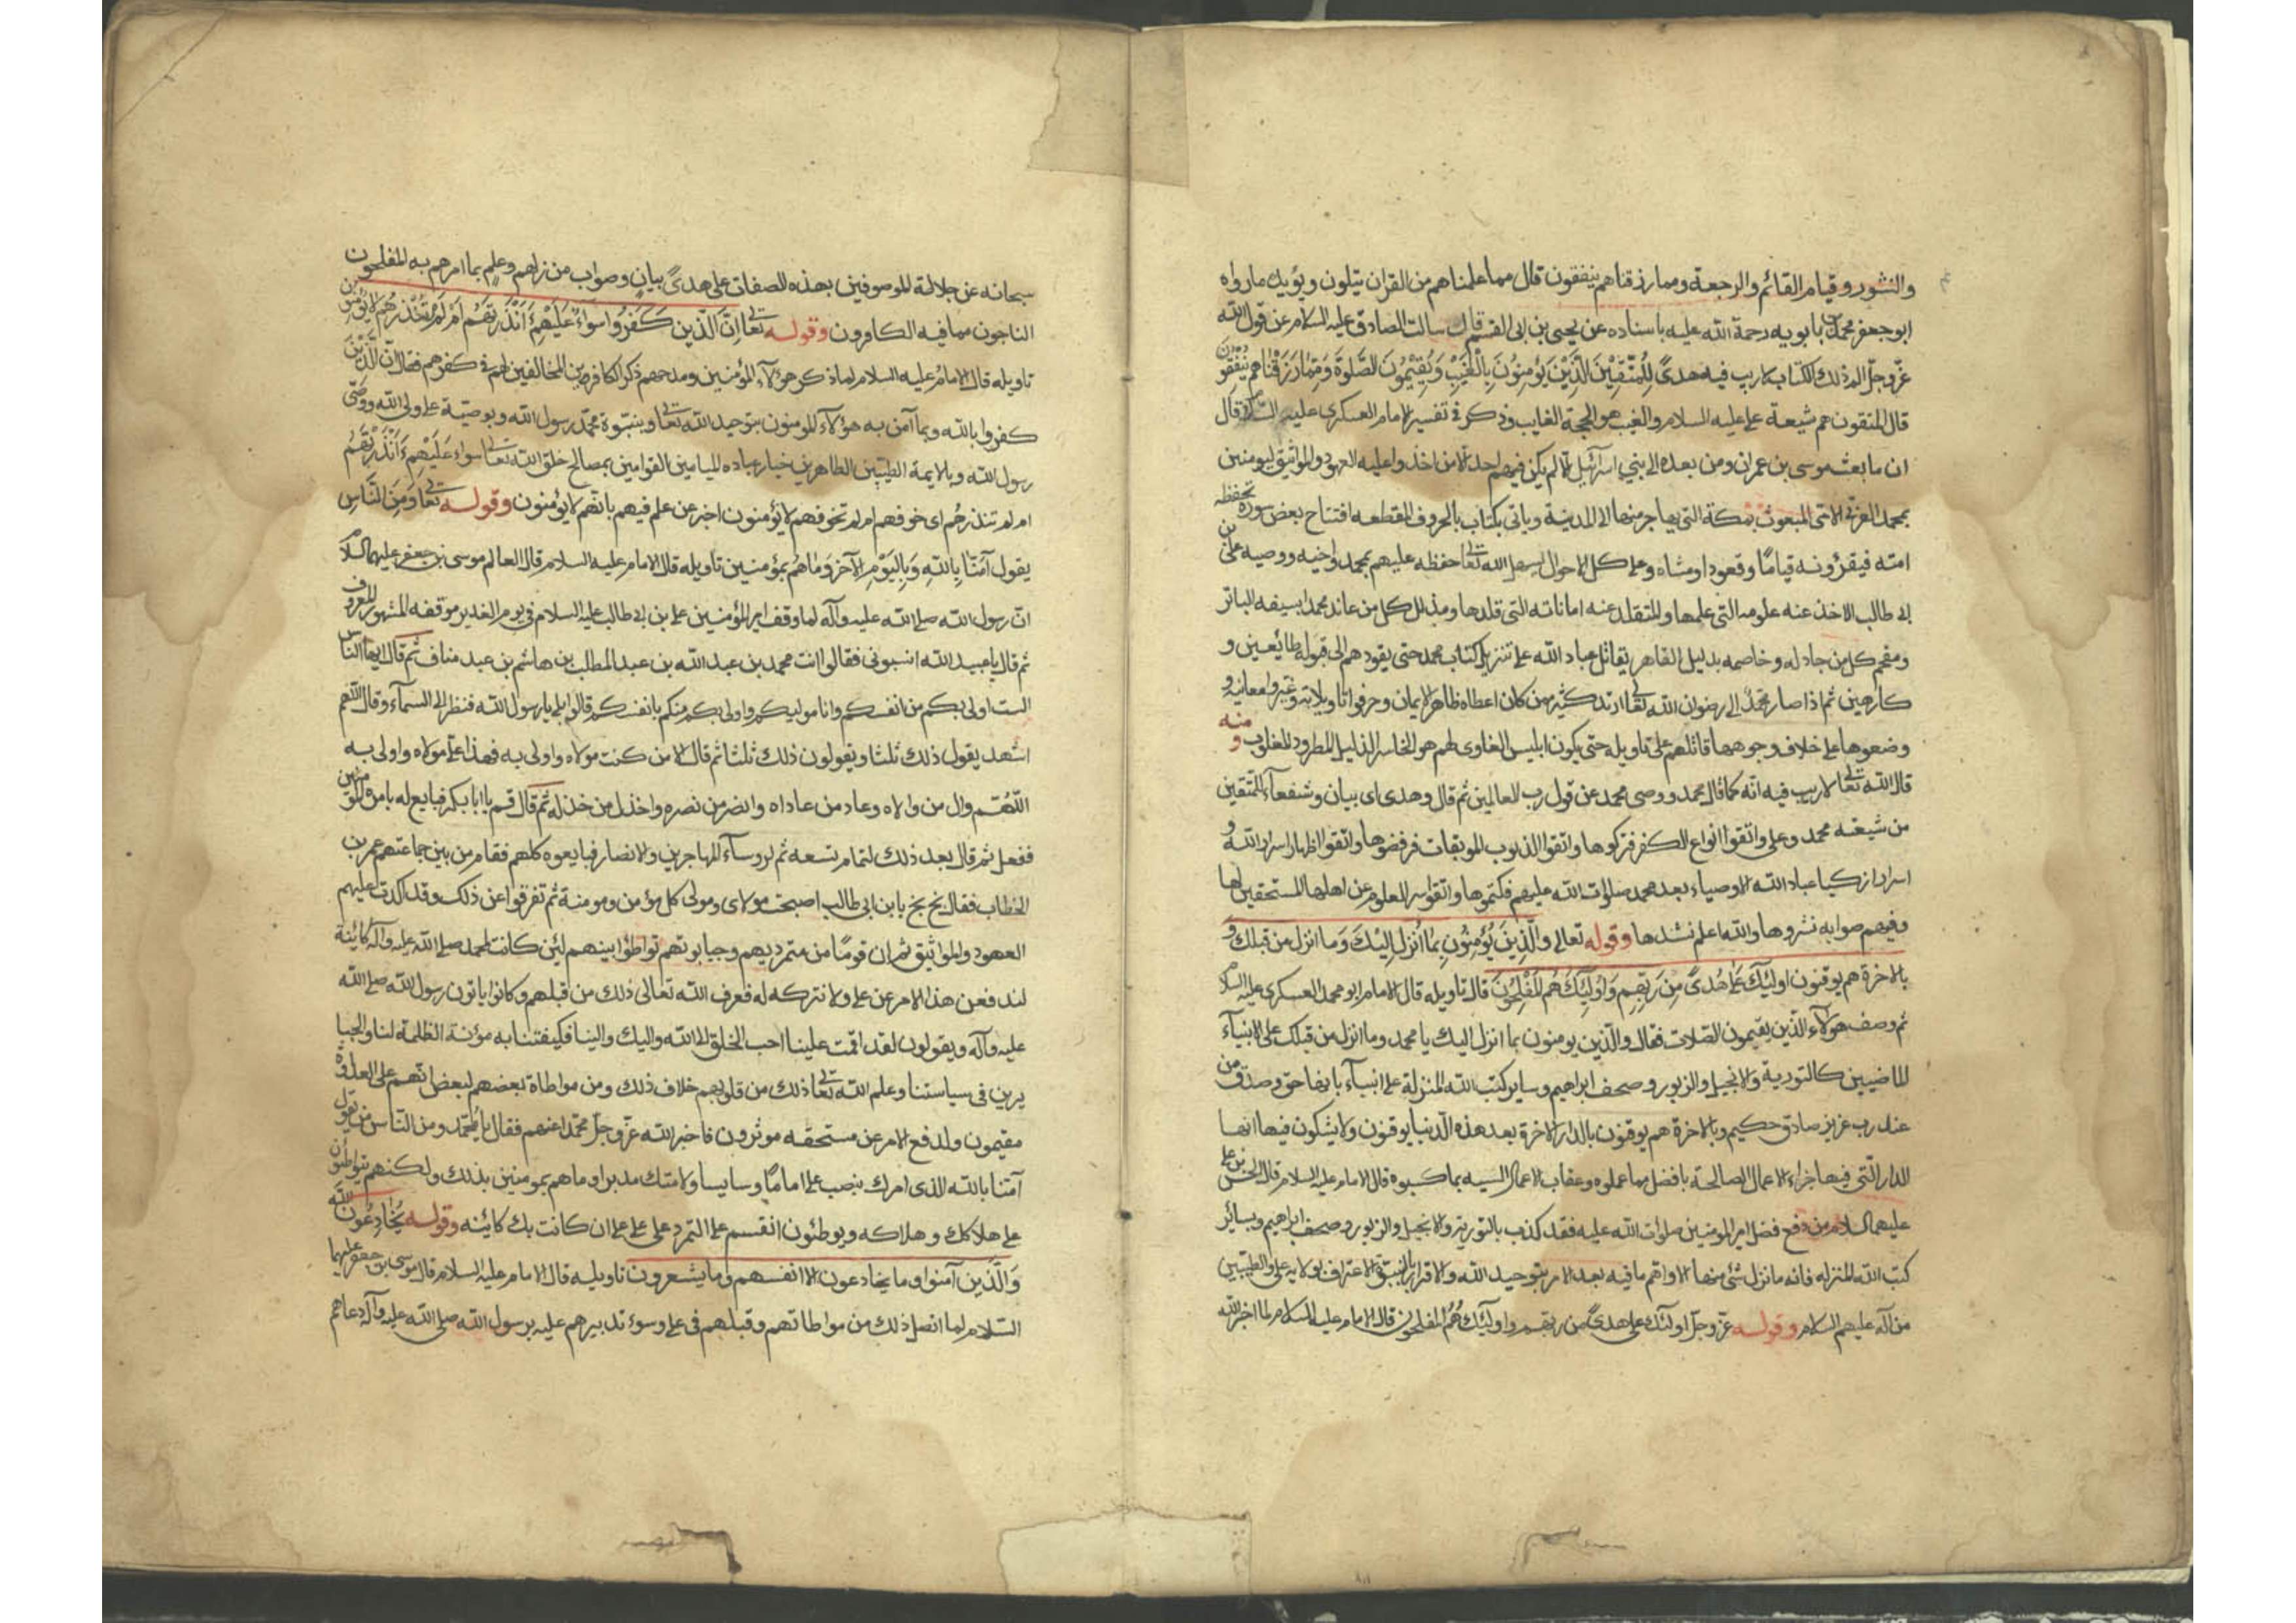 والنشور وقيام القائم والرجعة ومما رزقناهم ينفقون قال مما علمناهم من القران يتلون ويؤيد ما رواه
ابو جعفر محمد بن بابويه رحمة الله عليه باسناده عن يحيى بن ابى القسم قال سالت الصادق عليه السلام عن قول الله
عزّوجلّ الم ذلك الكتاب لا ريب فيه هدىً لِلمُتّقينَ الَّذينَ يُؤمِنُونَ بِالْغَيْبِ وَيُقيمُونَ الصَّلوةَ وَمِمّا رَزَقْناهُم يُنْفِقُونَ
قال المتقون هم شيعة على عليه السلام والغيب هو الحجة الغايب وذكر فى تفسير الامام العسكرى عليه السلام قال
ان ما بعث موسى بن عمران ومن بعده الى بني اسرائيل لم يكن فيهم احد الا من اخذوا عليه العهود والمواثيق ليومنين
بمحمد العربى الامّى المبعوث بمكة التى يهاجر منها الى المدينة وياتى بكتاب بالحروف المقطعه افتتاح بعض سوره تحفظه
امته فيقرؤنه قيامًا وقعودا ومشاه وعلى كل الاحوال يسهل الله تعالى حفظه عليهم بمحمد واخيه ووصيه على بن
ابى طالب الاخذ عنه علومه التى علمها والمتقلد عنه اماناته التى قلدها ومذلل كل من عاند محمدا بسيفه الباتر
ومفحم كل من جادله وخاصمه بدليل القاهر يقاتل عباد الله على تنزيل كتاب محمد حتى يقودهم الى قبوله طايعين و
كارهين ثم اذا صار محمد الى رضوان الله تعالى ارتد كثير ممن كان اعطاه ظاهر الايمان وحرفوا تاويلاته وغيروا معانيه و
وضعوها على خلاف وجوهها قاتلهم على تاويله حتى يكون ابليس الغاوى لهم هو الخاسر الذليل المطرود المغلوب منه و
قال الله تعالى لا ريب فيه انّه كما قال محمد ووصى محمد عن قول رب العالمين ثم قال وهدى اى بيان وشفعاء للمتّقين
من شيعته محمد وعلى واتقوا انواع الكفر فتركوها واتقوا الذنوب الموبقات فرفضوها واتقوا اظهار اسرار الله و
اسرار ازكيا عباد الله الاوصياء بعد محمد صلوات الله عليهم فكتموها واتقوا سر العلوم عن اهلها المستحقين لها
وفيهم صوابه نشروها والله اعلم نشدها وقوله تعالى والَّذينَ يُؤمِنُونَ بِمٰا اُنْزِلَ اِلَيْكَ وَمٰا انزل من قبلك و
بالاخرة هم يوقنون اولئِكَ عَلىٰ هُدىً مِنْ رَبِّهِم وَاُولٰئِكَ هُم المُفْلِحُونَ قال تاويله قال الامام ابو محمد العسكرى عليه السلام
ثم وصف هؤلاء الّذين يقيمون الصّلاة فقال والّذين يومنون بما انزل اليك يا محمد وما انزل من قبلك على الانبيآء
الماضيين كالتورية والانجيل والزبور وصحف ابراهيم وساير كتب الله المنزلة على انبيآء بانها حق وصدق من
عند رب عزيز صادق حكيم وبالاخرة هم يوقنون بالدار الاخرة بعد هذه الدّنيا يوقنون ولا يشكون فيها انها
الدار الّتى فيها جزاء الاعمال الصالحة بافضل مما عملوه وعقاب الاعمال السيه بما كسبوه قال الامام عليه السلام قال الحسن بن على
عليهما السلام من دفع فضل امير المومنين صلوات الله عليه فقد كذب بالتوريه والانجيل والزبور وصحف ابراهيم وسائر
كتب الله المنزله فانه ما نزل شئ منها الا واهم ما فيه بعد الامر بتوحيد الله والاقرار بالنبوّة الاعتراف بولاية على والطيبين
من آله عليهم السلام وقوله عزّوجلّ اولئك على هدىً من ربّهم واولئك هُمُ المفلحون قال الامام عليه السلام لما اخبر الله
سبحانه عن جلالة الموصوفين بهذه الصفات على هدىً بيان وصواب من ربهم وعلم بما امرهم به المفلحون
الناجون مما فيه الكافرون وقوله تعالى اِنَّ الّذين كَفَرُوا سَواءٌ عَلَيْهِمْ ءَاَنْذَرْتَهُم اَمْ لَمْ تُنْذِرْهُم لا يُؤمنون
تاويله قال الامامُ عليه السلام لما ذكر هؤلآء المؤمنين ومدحهم ذكر الكافرين المخالفين لهم فى كفرهم فقال انّ الّذين
كفروا بالله وبما آمن به هؤلآء المومنون بتوحيد الله تعالى وبنبوّة محمّد رسول الله وبوصيّة على ولى الله ووصّى
رسول الله وبالايمة الطيّبين الطاهرين خيار عباده الميامين القوامين بمصالح خلق الله تعالى سواء عَلَيْهِم ءَاَنْذَرْتَهُم
ام لم تنذرهُم اى خوفهم ام لم تخوفهم لا يؤمنون اخبر عن علم فيهم بانّهم لا يؤمنون وقوله تعالى وَمِنَ النّاسِ
يقول آمَنّا بِاللهِ وَبِاليَوْمِ الآخِرِ وَمٰا هُم بمؤمنين تاويله قال الامام عليه السلام قال العالم موسى بن جعفر عليهما السلام
انّ رسول الله صلى الله عليه وآله لما وقف امير المؤمنين على بن ابى طالب عليه السلام فى يوم الغدير موقفه المشهور المعروف
ثم قال يا عبيد الله انسبونى فقالوا انت محمد بن عبد الله بن عبد المطلب بن هاشم بن عبد مناف ثم قال ايها الناس
الست اولى بكم من انفسكم وانا موليكم واولى بكم منكم بانفسكم قالوا بلى يا رسول الله فنظر الى السمآء وقال اللّهم
اشهد يقول ذلك ثلثا ويقولون ذلك ثلثا ثم قال الا من كنت مولاه واولى به فهذا على مولاه واولى به
اللّهُمّ وال من والاه وعاد من عاداه وانصر من نصره واخذل من خذله ثم قال قم يا ابا بكر فبايع له بامرة المؤمنين
ففعل ثم قال بعد ذلك لتمام تسعه ثم لروسآء المهاجرين والانصار فبايعوه كلهم فقام من بين جماعتهم عمر بن
الخطاب فقال بخ بخ يا بن ابى طالب اصبحت مولاى ومولى كل مؤمن ومومنة ثم تفرقوا عن ذلك وقد اكدت عليهم
العهود والمواثيق ثم ان قومًا من متمرديهم وجبابرتهم تواطؤا بينهم لئن كانت لمحمد صلى الله عليه وآله كائنة
لندفعن هذا الامر عن على ولا نتركه له فعرف الله تعالى ذلك من قبلهم وكانوا ياتون رسول الله صلى الله
عليه وآله ويقولون لقد اقمت علينا احب الخلق الى الله واليك والينا فكيفتنا به مؤنة الظلمة لنا والجبا
يرين فى سياستنا وعلم الله تعالى ذلك من قلوبهم خلاف ذلك ومن مواطاة بعضهم لبعض انّهم على العداوة
مقيمون ولدفع الامر عن مستحقه موثرون فاخبر الله عزّوجلّ محمّدا عنهم فقال يا محمّد ومن النّاس من يقول
آمنّا بالله الذى امرك بنصب على امامًا وسايسا ولامتك مدبرا وما هم بمومنين بذلك ولكنهم يتواطئون
على هلاكك وهلاكه ويوطئون انفسهم على التمرد على على ان كانت بك كائنه وقوله يُخٰادِعُونَ الله
وَالَّذين آمنوا وما يخادعون الا انفسهم وما يشعرون تاويله قال الامام عليه السلام قال موسى بن جعفر عليهما
السّلام لما اتصل ذلك من مواطاتهم وقيلهم فى على وسوء تدبيرهم عليه برسول الله صلى الله عليه وآله دعاهم